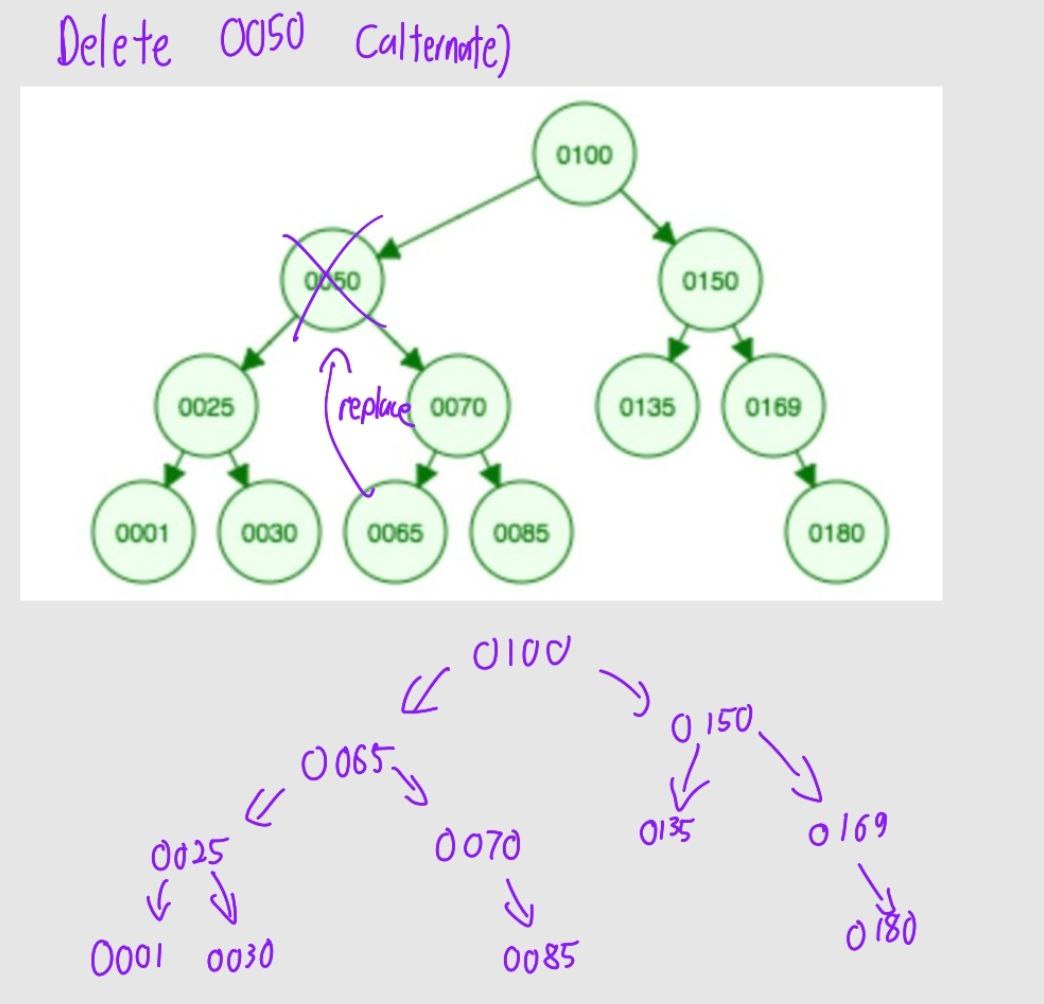 Delete 0050 (alternate)
0100
0050 0150
0025 replace 0070 0135 0169
0001 0030 0065 0085 0180
0100
0150
0065
0135 0169
0025 0070
0180
0001 0030 0085